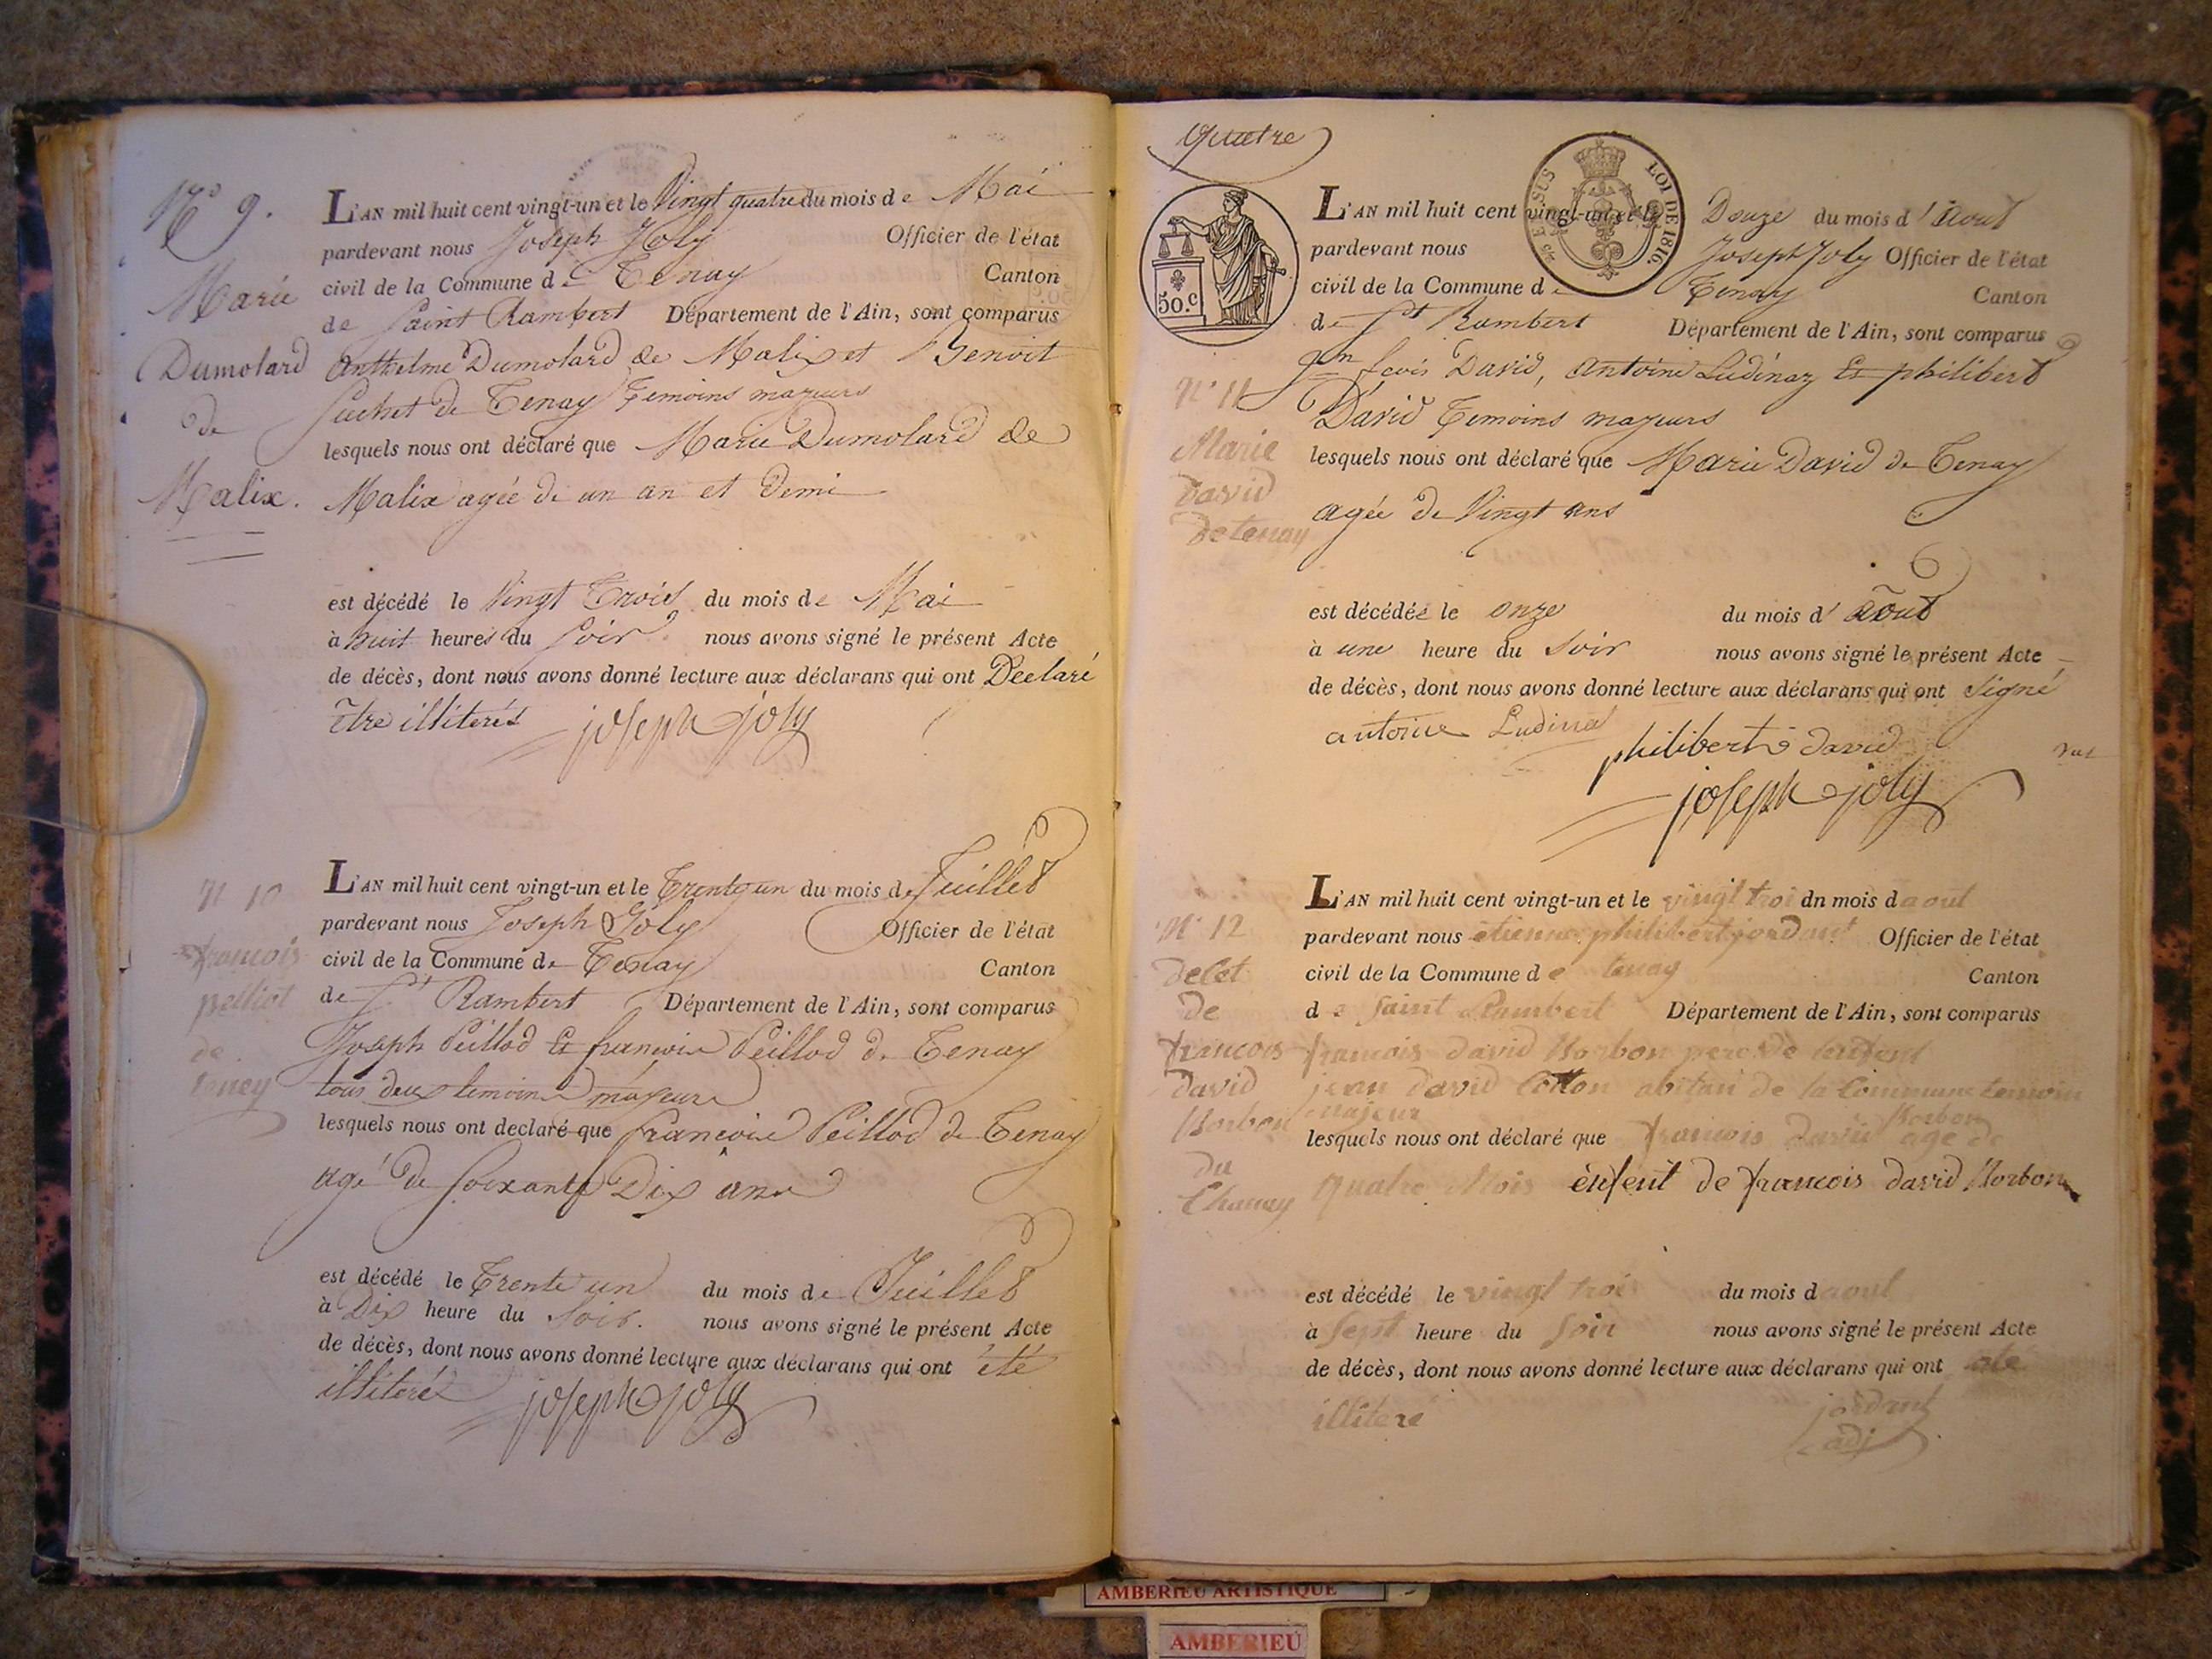 N° 9.
Marie
Dumolard
de
Malix.
L'AN mil huit cent vingt-un et le Vingt quatre du mois de Mai
pardevant nous Joseph Joly Officier de l'état
civil de la Commune de Tenay Canton
de Saint Rambert Département de l'Ain, sont comparus
Anthelme Dumolard de Malix et Benoit
Suchet de Tenay Temoins majeurs
lesquels nous ont déclaré que Marie Dumolard de
Malix agée de un an et Demi
est décédé le Vingt Trois du mois de Mai
à huit heures du Soir nous avons signé le présent Acte
de décès, dont nous avons donné lecture aux déclarans qui ont Declaré
être illiterés joseph joly
N 10
francois
peilliot
de
teney
L'AN mil huit cent vingt-un et le Trente un du mois de Juillet
pardevant nous Joseph Joly Officier de l'état
civil de la Commune de Tenay Canton
de St Rambert Département de l'Ain, sont comparus
Joseph Peillod Et francois Peillod de Tenay
tous deux temoins majeurs
lesquels nous ont declaré que francois Peillod de Tenay
agé de Soixante Dix ans
est décédé le Trente un du mois de Juillet
à Dix heure du Soir. nous avons signé le présent Acte
de décès, dont nous avons donné lecture aux déclarans qui ont été
illiteré joseph joly
quatre
50.c
LOI DE 1816.
N° 11
Marie
David
de tenay
L'AN mil huit cent vingt-un et le Douze du mois d'Aout
pardevant nous Joseph Joly Officier de l'état
civil de la Commune de Tenay Canton
de St Rambert Département de l'Ain, sont comparus
fcois David, Antoine Ludinaz Et philibert
David Temoins majeurs
lesquels nous ont déclaré que Marie David de Tenay
agée de Vingt ans
est décédée le onze du mois d'Aout
à une heure du Soir nous avons signé le présent Acte
de décès, dont nous avons donné lecture aux déclarans qui ont Signé
antoine Ludina
philibert david
joseph joly
N° 12
decet
de
francois
david
Morbon
du
Chanay
L'AN mil huit cent vingt-un et le vingt troi dn mois d aout
pardevant nous etienne philibert jordant Officier de l'état
civil de la Commune de tenay Canton
de Saint Rambert Département de l'Ain, sont comparus
francois david Morbon pere de lenfent
jean david Cotton abitan de la Commune temoin
majeur
lesquels nous ont déclaré que francois david Morbon age de
quatre Mois enfent de francois david Morbon
est décédé le vingt troi du mois d aout
à Sept heure du Soir nous avons signé le présent Acte
de décès, dont nous avons donné lecture aux déclarans qui ont ate
illiteré jordant
adj
AMBERIEU ARTISTIQUE
AMBERIEU